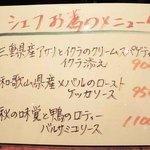 シェフお薦のメニュー
三重県産アサリとイクラのクリームスパゲティ
イクラ添え 900
和歌山県産メバルのロースト
ケッカソース 950
秋の味覚と鴨のロティー
バルサミコソース 1100